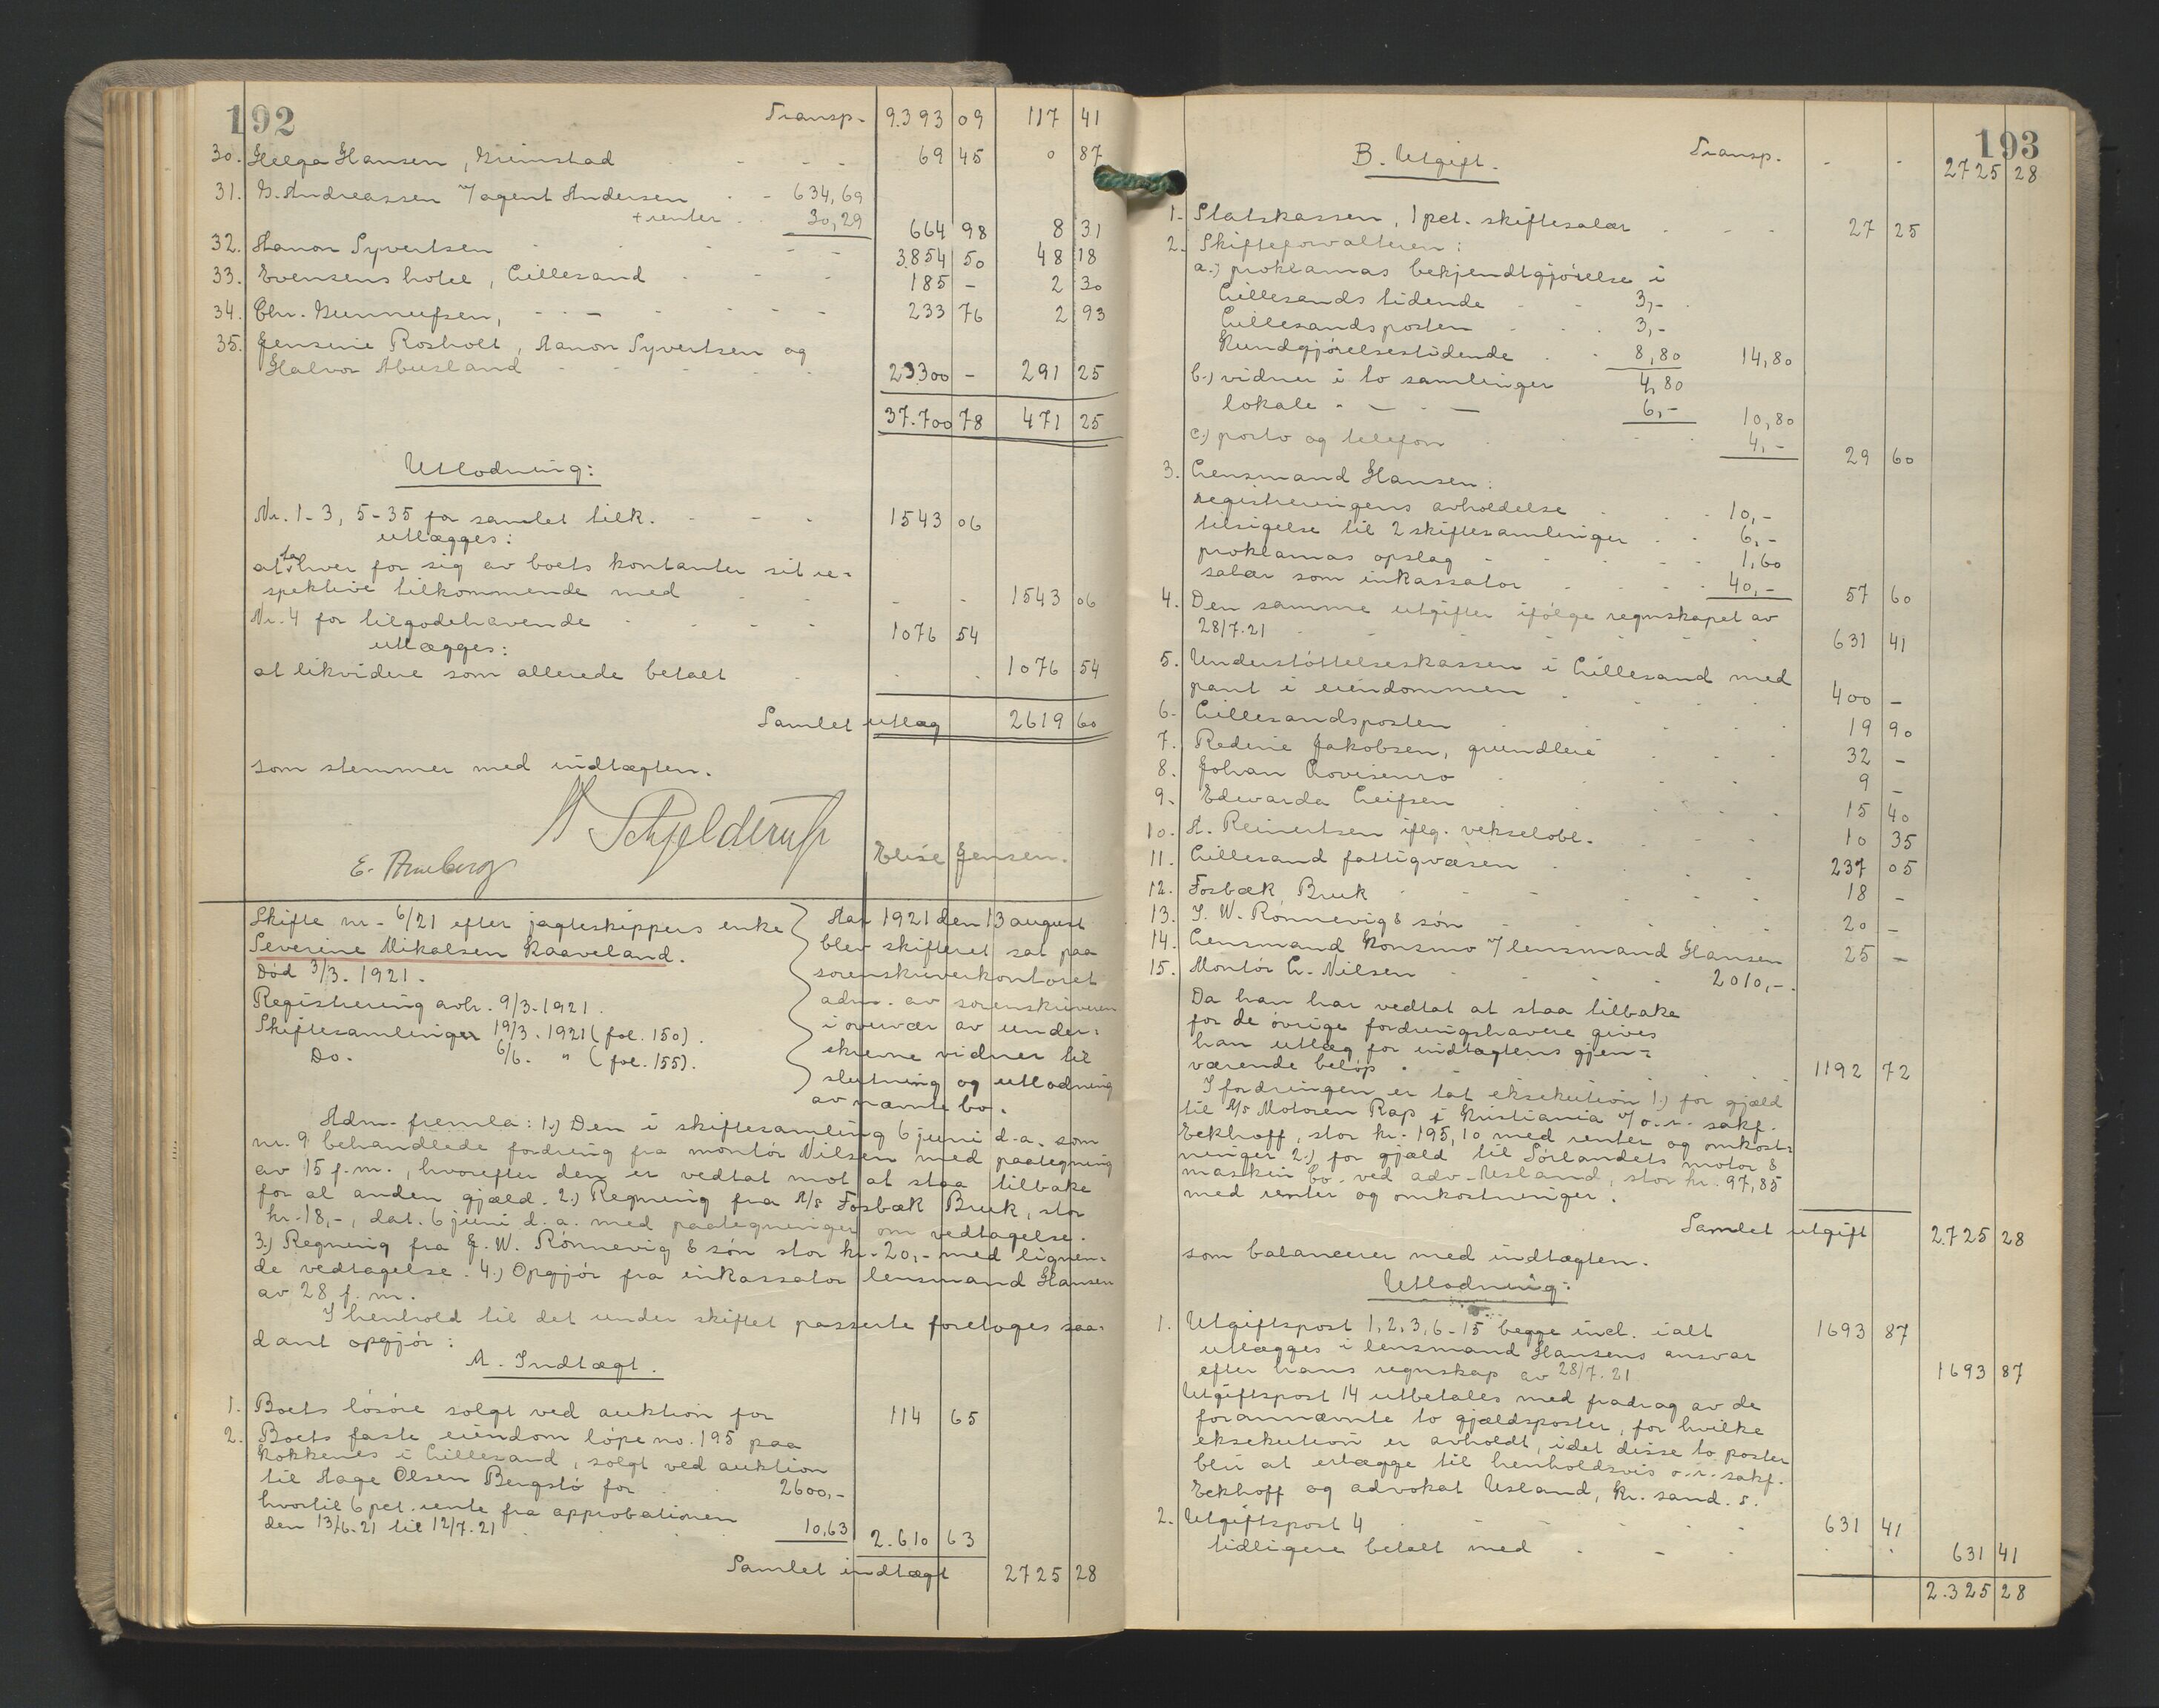 192
Transp. 9393 09 117 41
30. Helga Hansen, Grimstad - - - 69 45 0 87
31. G. Andreassen 7 agent Andersen - - 634,69
+ renter . . 30,29 664 98 8 31
32. Aanon Syvertsen - - - 3854 50 48 18
33. Evensens hotel, Lillesand - - - 185 - 2 30
34. Chr. Gunnufsen, - - - - - - 233 76 2 93
35. Jensine Rosholt, Aanon Syvertsen og
Halvor Abusland - - - 23300 - 291 25
37.700 78 471 25
Utlodning:
Nr. 1-3, 5-35 for samlet tilk. - - - 1543 06
utlægges:
at ta hver for sig av boets kontanter sit re-
spektive tilkommende med - - - - 1543 06
Nr. 4 for tilgodehavende - - - 1076 54
utlægges:
at likvidere som allerede betalt . . . 1076 54
Samlet utlæg 2619 60
som stemmer med indtægten.
Schjelderup
E. Arneberg Elise Jensen.
Skifte nr. 6/21 efter jagteskippers enke
Severine Mikalsen Kaaveland.
Död 3/3. 1921.
Registrering avh. 9/3. 1921.
Skiftesamlinger 19/3. 1921 (fol. 150).
Do. 6/6. " (fol. 155).
Aar 1921 den 13 august
blev skifteret sat paa
sorenskriverkontoret
adm. av sorenskriveren
i overvær av under-
skrevne vidner til
slutning og utlodning
av nævnte bo.
Adm. fremla: 1.) Den i skiftesamling 6 juni d.a. som
nr. 9 behandlede fordring fra montör Nilsen med paategning
av 15 f.m., hvorefter den er vedtat mot at staa tilbake
for al anden gjæld. 2.) Regning fra A/S Fosbæk Bruk, stor
kr. 18,-, dat. 6 juni d.a. med paategninger om vedtagelse.
3.) Regning fra J. W. Rönnevig & sön stor kr. 20,- med lignen-
de vedtagelse. 4.) Opgjör fra inkassator lensmand Hansen
av 28 f.m.
I henhold til det under skiftet passerte foretoges saa-
dant opgjör:
A. Indtægt.
1. Boets lösöre solgt ved auktion for 114 65
2. Boets faste eiendom löpe no. 195 paa
Kokkenes i Lillesand, solgt ved auktion
til Aage Olsen Bergstö for . . 2600,-
hvortil 6 pct. rente fra approbationen
den 13/6.21 til 12/7.21 . . . 10,63 2.610 63
Samlet indtægt 2725 28
193
B. Utgift. Transp. - - 2725 28
1. Statskassen, 1 pct. skiftesalær . - - - 27 25
2. Skifteforvalteren:
a.) proklamas bekjendtgjörelse i
Lillesands tidende - - 3,-
Lillesandsposten - . . 3,-
Kundgjörelsestidende . . 8,80 14,80
b.) vidner i to samlinger 4,80
lokale - — . — 6,- 10,80
c.) porto og telefon . . . 4,- 29 60
3. Lensmand Hansen:
registreringens avholdelse . . . 10,-
tilsigelse til 2 skiftesamlinger . . 6,-
proklamas opslag - - - - 1,60
salær som inkassator . . . 40,- 57 60
4. Den samme utgifter ifölge regnskapet av
28/7.21 - - - - - - 631 41
5. Understöttelseskassen i Lillesand med
pant i eiendommen . . . . 400 -
6. Lillesandsposten . . . 19 90
7. Rederie Jakobsen, grundleie . . . 32 -
8. Johan Lovisenro . . . 9 -
9. Edvarda Leifsen . . . 15 40
10. A. Reinertsen iflg. vekselobl. . - - 10 35
11. Lillesand fattigvæsen . . . 237 05
12. Fosbæk Bruk . - - - - - 18 -
13. J. W. Rönnevig & sön - - . . . 20 -
14. Lensmand Konsmo 7 lensmand Hansen 25 -
15. Montör L. Nilsen - - - 2010,-.
Da han har vedtat at staa tilbake
for de övrige fordringshavere gives
han utlæg for indtægtens gjen-
værende belöp . . . . . 1192 72
I fordringen er tat eksekution 1.) for gjæld
til A/S Motoren Rap i Kristiania v/ o.r. sakf.
Eckhoff, stor kr. 195,10 med renter og omkost-
ninger 2.) for gjæld til Sörlandets motor &
maskin Co. ved adv. Usland, stor kr. 97,85
med renter og omkostninger.
Samlet utgift 2.725 28
som balancerer med indtægten.
Utlodning:
1. Utgiftspost 1, 2, 3, 6-15 begge incl. ialt 1693 87
utlægges i lensmand Hansens ansvar
efter hans regnskap av 28/7.21 1693 87
Utgiftspost 14 utbetales med fradrag av de
forannævnte to gjældsposter, for hvilke
eksekution er avholdt, idet disse to poster
blir at erlægge til henholdsvis o.r. sakf.
Eckhoff og advokat Usland, Kr. sand. S.
2. Utgiftspost 4 - - - - - 631 41
tidligere betalt med . - - . . 631 41
2.325 28